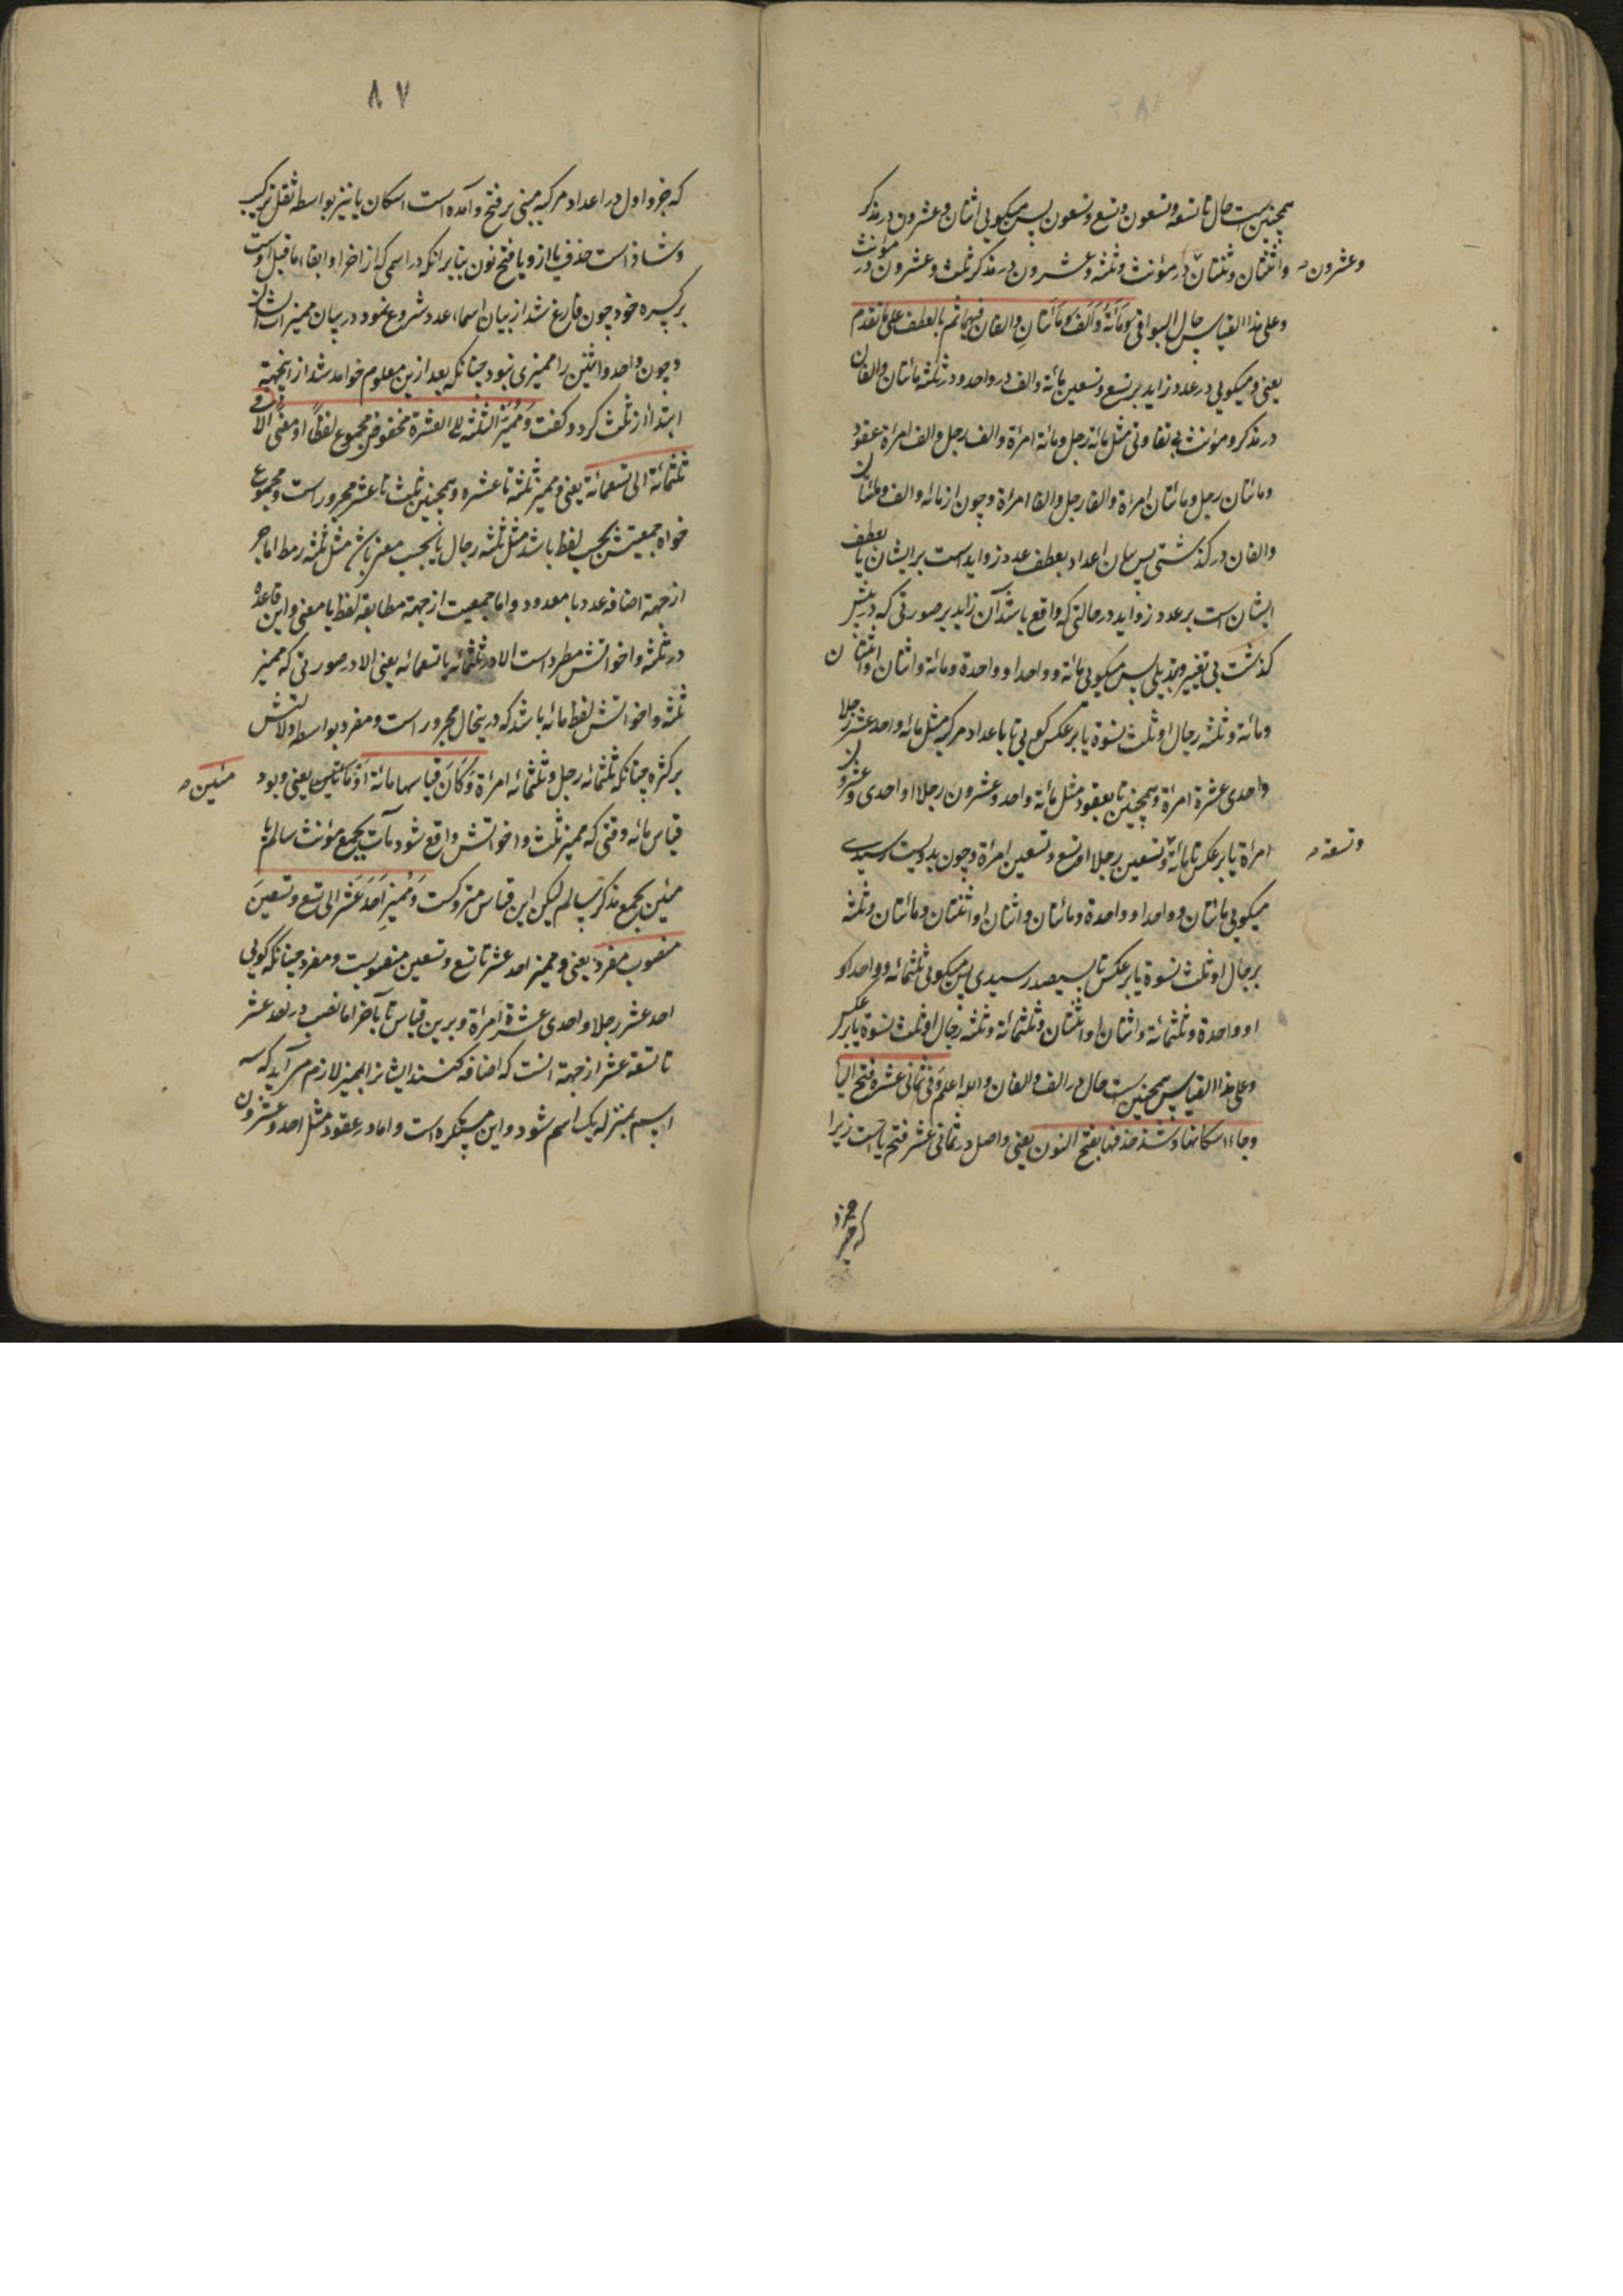 همچنین است حال تا تسعه و تسعون و تسع و تسعون پس میکویی اثنان و عشرون در مذکر
و اثنتان و ثنتان در مؤنث و ثلثه و عشرون در مذکر ثلث و عشرون در مؤنث
وعشرون
وعلی هذا القیاس حال البواقی ومائَة وَاَلف ومائتانِ والفان فیهما ثم بالعطف علی ما تقدم
یعنی ومیکویی در عدد زاید بر تسع و تسعین مائة والف در واحد و در تثنیه مائتان والفان
در مذکر و مؤنث بی تفاوتی مثل مائة رجل ومائة امرأة والف رجل والف امرأة
ومائتان رجل ومائتان امرأة والفا رجل والفا امرأة و چون از مائه والف ومائتان
والفان در کذشتی پس بیان اعداد بعطف عدد زواید است بر ایشان یا بعطف
ایشان است بر عدد زواید در حالتی که واقع باشد آن زاید بر صورتی که در پیش
کذشت بی تغییر و تبدیلی پس میکویی مائة وواحد او واحدة ومائة واثنان واثنتان
ومائة وثلثه رجال او ثلث نسوة یا بر عکس کویی تا باعداد مرکبه مثل مائه واحد عشر رجلا
واحدی عشرة امرأة وهمچنین تا بعقود مثل مائة واحد وعشرون رجلا او احدی وعشرون
امرأة یا بر عکس تا مائة وتسعین رجلا او تسع وتسعین امرأة و چون بدویست رسیدی
وتسعة
میکویی مائتان وواحد او واحدة ومائتان واثنان او اثنتان ومائتان وثلثه
رجال او ثلث نسوة یا بر عکس تا بسیصد رسیدی پس میکویی ثلثمائه وواحد او
او واحدة وثلثمائة واثنان او اثنتان وثلثمائة وثلثه رجال او ثلث نسوة یا بر عکس
وعلی هذا القیاس همچنین است حال در الف والفان والله اعلم وفی ثمانی عشرة فتح الیا
وجاء اسکانها وشذ حذفها بفتح النون یعنی واصل در ثمانی عشر فتح یا است زیرا
که جزو
۸۷
که جزو اول در اعداد مرکبه مبنی بر فتح وآمده است اسکان یا نیز بواسطه ثقل ترکیب
وشاذ است حذف یا ازو با فتح نون بنابر انکه در اسمی که از اخر او ابقاء ما قبل اوست
بر کسره خود چون فارغ شد از بیان اسماء عدد شروع نمود در بیان ممیزات ایشان
و چون واحد واثنین را ممیزی نبود چنانکه بعد ازین معلوم خواهد شد از اینجهة
ابتدا از ثلث کرد و کفت وَممیّز الثلثة الی العشرة مخفوض مجموع لفظًا او معنًی الّا فی
ثلثمائة الی تسعمائة یعنی وممیز ثلثه تا عشره وهمچنین ثلث تا عشر مجرور است ومجموع
خواه جمعیتش بحسب لفظ باشد مثل ثلثه رجال یا بحسب معنی باشد مثل ثلثه رهط اما جر
از جهة اضافه عدد با معدود واما جمعیت از جهة مطابقه لفظ با معنی واین قاعده
در ثلثه واخواتش مطرد است الا در ثلثمائه تا تسعمائه یعنی الا در صورتی که ممیز
ثلثه واخواتش لفظ مائه باشد که درینحال مجرور است ومفرد بواسطه دلالتش
بر کثره چنانکه ثلثمائه رجل وثلثمائه امرأة وَکَانَ قیاسها مائة اَوْ یعنی وبود
مئین
قیاس مائه وقتی که ممیز ثلث واخواتش واقع شود مآت بجمع مؤنث سالم یا
مئین بجمع مذکر سالم لیکن این قیاس متروکست وَممیزِ اَحَدَ عَشَر الی تسع وتسعینَ
منصوب مفرد یعنی وممیز احد عشر تا تسع وتسعین منصوبست ومفرد چنانکه کویی
احد عشر رجلا واحدی عشرة امرأة وبرین قیاس تا بآخر اما نصب در احد عشر
تا تسعة عشر از جهة انست که اضافه کنند ایشانرا بممیز لازم می آید که سه
اسم بمنزله یک اسم شود واین مستکره است واما در عقود مثل احد وعشرون